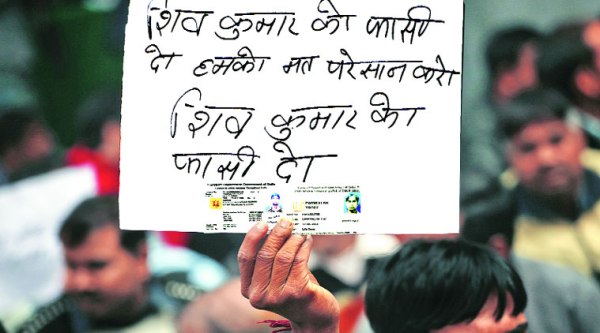 शिव कुमार को फासी
दो हमको मत परेसान करो
शिव कुमार को
फासी दो